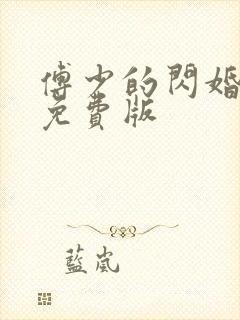 傅少的閃婚
免費版
藍嵐